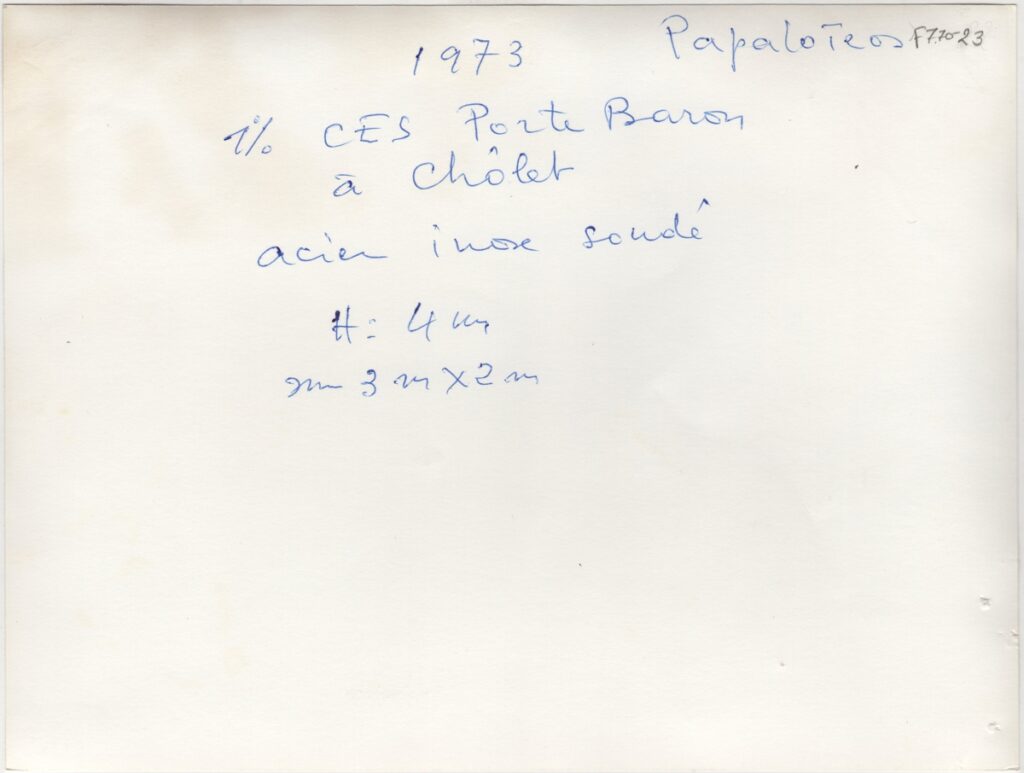 1973 Papaloïzos F7.70-23
1% CES Porte Baron
à Chôlet
acier inox soudé
H: 4 m
3 m X 2 m